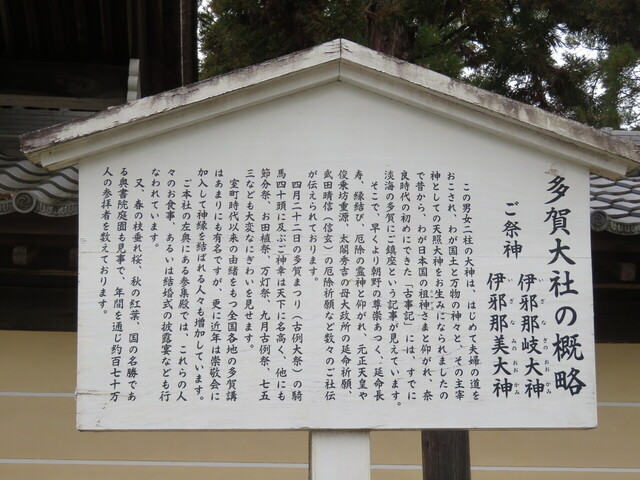 多賀大社の概略
ご祭神
伊邪那岐大神
いざなぎのおおかみ
伊邪那美大神
いざなみのおおかみ
この男女二柱の大神は、はじめて夫婦の道を
おこされ、わが国土と万物の神々と、その主宰
神としての天照大神をお生みになられましたの
で昔から、わが日本国の祖神さまと仰がれ、奈
良時代の初めにできた「古事記」には、すでに
淡海の多賀にご鎮座という記事が見えています。
そこで、早くより朝野の尊崇あつく、延命長
寿、縁結び、厄除の霊神と仰がれ、元正天皇や
俊乗坊重源、太閤秀吉の母大政所の延命祈願、
武田晴信(信玄)の厄除祈願など数々のご社伝
が伝えられております。
四月二十二日の多賀まつり(古例大祭)の騎
馬四十頭に及ぶご神幸は天下に名高く、他にも
節分祭、お田植祭、万灯祭、九月古例祭、七五
三なども大変なにぎわいを見せます。
室町時代以来の由緒をもつ全国各地の多賀講
はあまりにも有名ですが、更に近年は崇敬会に
加入して神縁を結ばれる人々も増加しています。
ご本社の左奥にある参集殿では、これらの人
々のお食事、あるいは結婚式の披露宴なども行
なわれています。
又、春の枝垂れ桜、秋の紅葉、国の名勝であ
る奥書院庭園も見事で、年間を通じ約百七十万
人の参拝者を数えております。